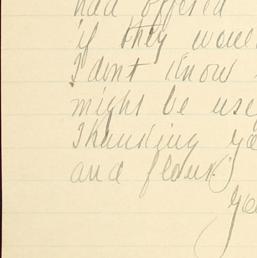 had offered
if they woul
I dont know
might be use
Thanking yo
and